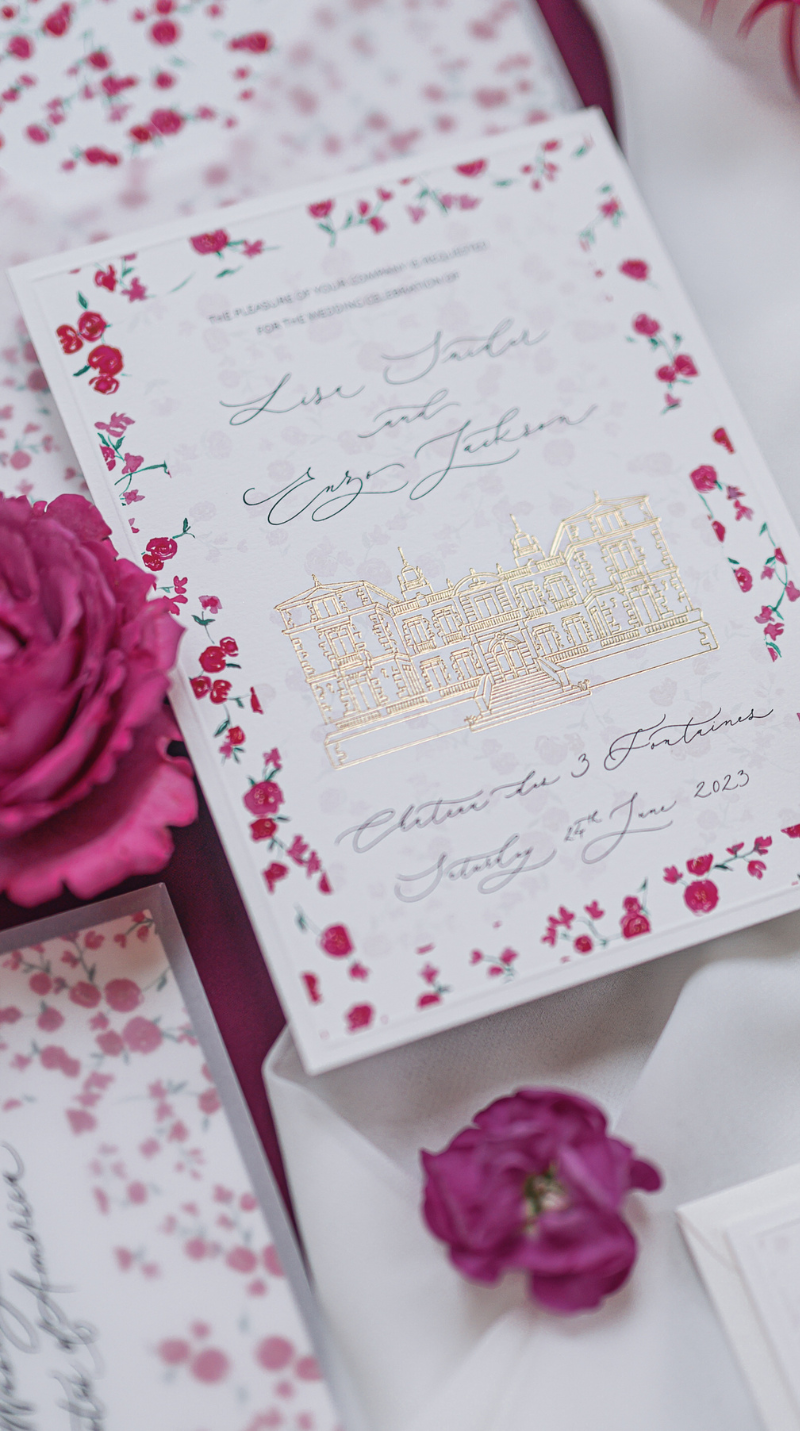 THE PLEASURE OF YOUR COMPANY IS REQUESTED
FOR THE WEDDING CELEBRATION OF
Lisa
and
Enzo Jackson
Chateau des 3 Fontaines
Saturday 24th June 2023
of America